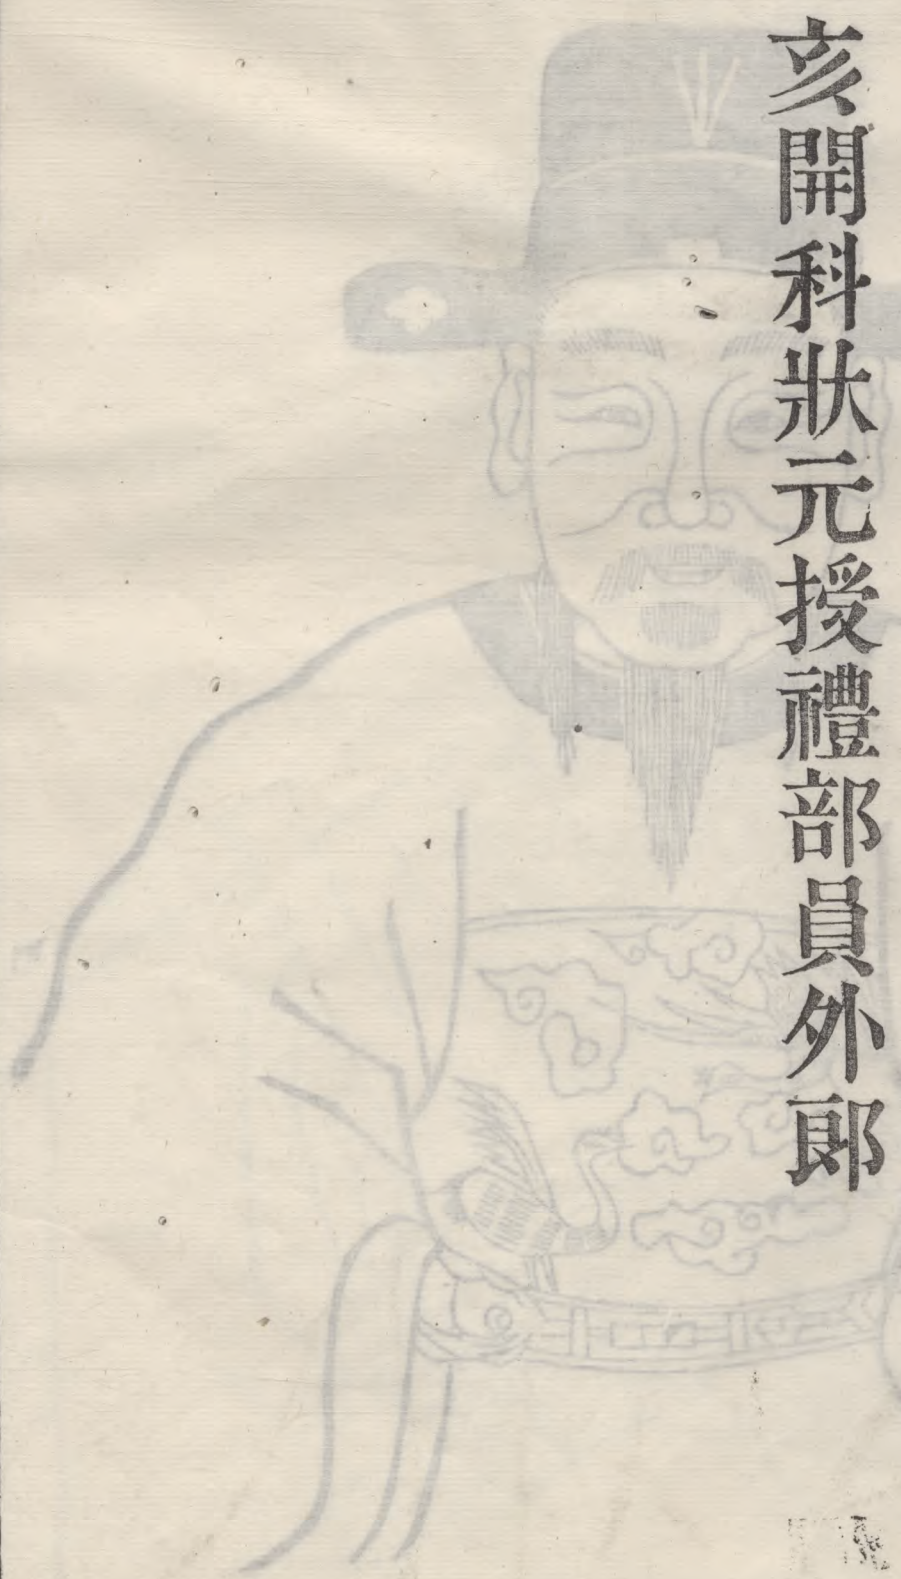 亥開科狀元授禮部員外郎